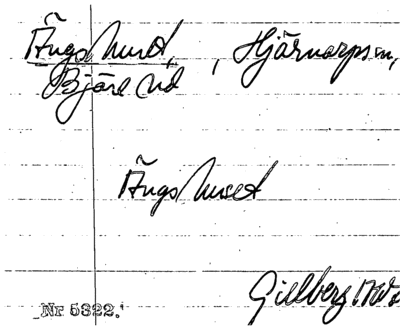 Ängshuset, , Hjärnarpsn,
Bjäre hd
Ängshuset
Gillberg
Nr 5322.